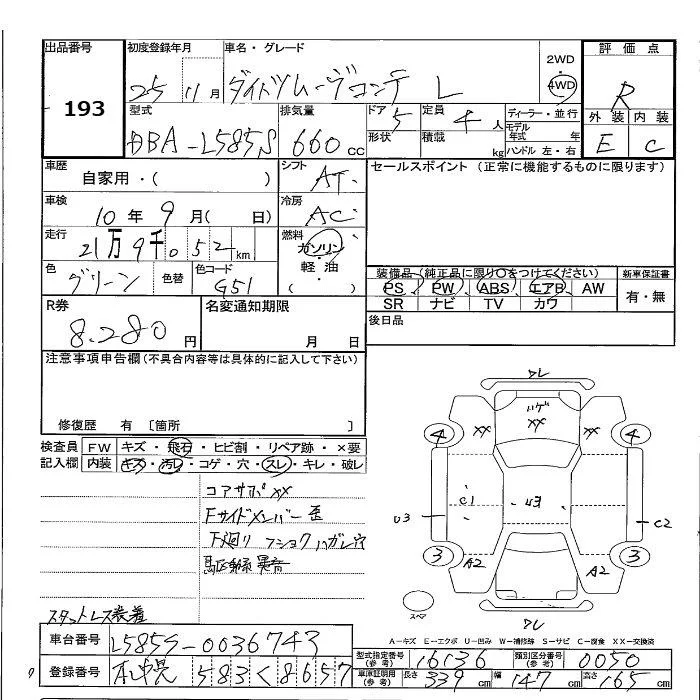 出品番号
193
初度登録年月
25 11月
車名・グレード
ダイハツムーヴコンテ L
2WD
4WD
評価点
R
外装 内装
E C
型式
DBA-L585S
排気量
660cc
ドア 5
形状
定員 4人
積載 kg
ディーラー・並行
モデル年式 年
ハンドル 左・右
車歴
自家用・( )
シフト AT
車検
10年9月( 日)
冷房 AC
走行
21万9千052km
燃料
ガソリン・
軽油・
( )
色
グリーン
色替
色コード
G51
セールスポイント (正常に機能するものに限ります)
装備品(純正品に限り○をつけてください)
PS PW ABS エアB AW
SR ナビ TV カワ
新車保証書
有・無
後日品
R券
8.280円
名変通知期限
月 日
注意事項申告欄(不具合内容等は具体的に記入して下さい)
修復歴 有 〔箇所 〕
検査員 FW キズ・飛石・ヒビ割・リペア跡・×要
記入欄 内装 キズ・汚レ・コゲ・穴・スレ・キレ・破レ
コアサポXX
Fサイドメンバー歪
下廻り
異音
スタットレス装着
ワレ
ハゲ
XX XX XX
4 4
C1 U3
U3 C2
3 3
A2 A2
スペア
ワレ
A-キズ E-エクボ U-凹み W-補修跡 S-サビ C-腐食 XX-交換済
車台番号 L585S-0036743
登録番号 札幌 583く8657
型式指定番号(参考) 16136
類別区分番号(参考) 0050
車庫証明用(参考) 長さ 339cm 幅 147cm 高さ 165cm